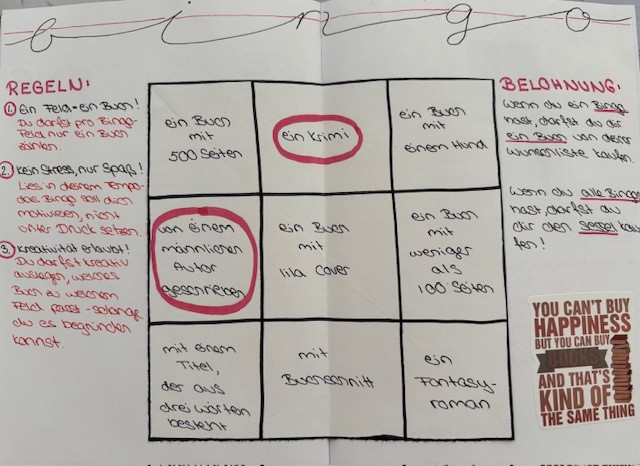 bingo
REGELN:
1. Ein Feld = ein Buch!
Du darfst pro Bingo-
Feld nur ein Buch
zählen.
2. kein Stress, nur Spaß!
Lies in deinem Tempo-
das Bingo soll dich
motivieren, nicht
unter Druck setzen.
3. Kreativität erlaubt!
Du darfst kreativ
auslegen, welches
Buch zu welchem
Feld passt - solange
du es begründen
kannst.
ein Buch
mit
500 Seiten
ein Krimi
ein Buch
mit
einem Hund
von einem
männlichen
Autor
geschrieben
ein Buch
mit
lila Cover
ein Buch
mit
weniger
als
100 Seiten
mit einem
Titel,
der aus
drei Wörten
besteht
mit
Buchschnitt
ein
Fantasy-
roman
BELOHNUNG:
Wenn du ein Bingo
hast, darfst du dir
ein Buch von deiner
Wunschliste kaufen.
Wenn du alle Bingos
hast, darfst du
dir den Sessel kau-
fen!
YOU CAN'T BUY
HAPPINESS
BUT YOU CAN BUY
BOOKS
AND THAT'S
KIND OF
THE SAME THING